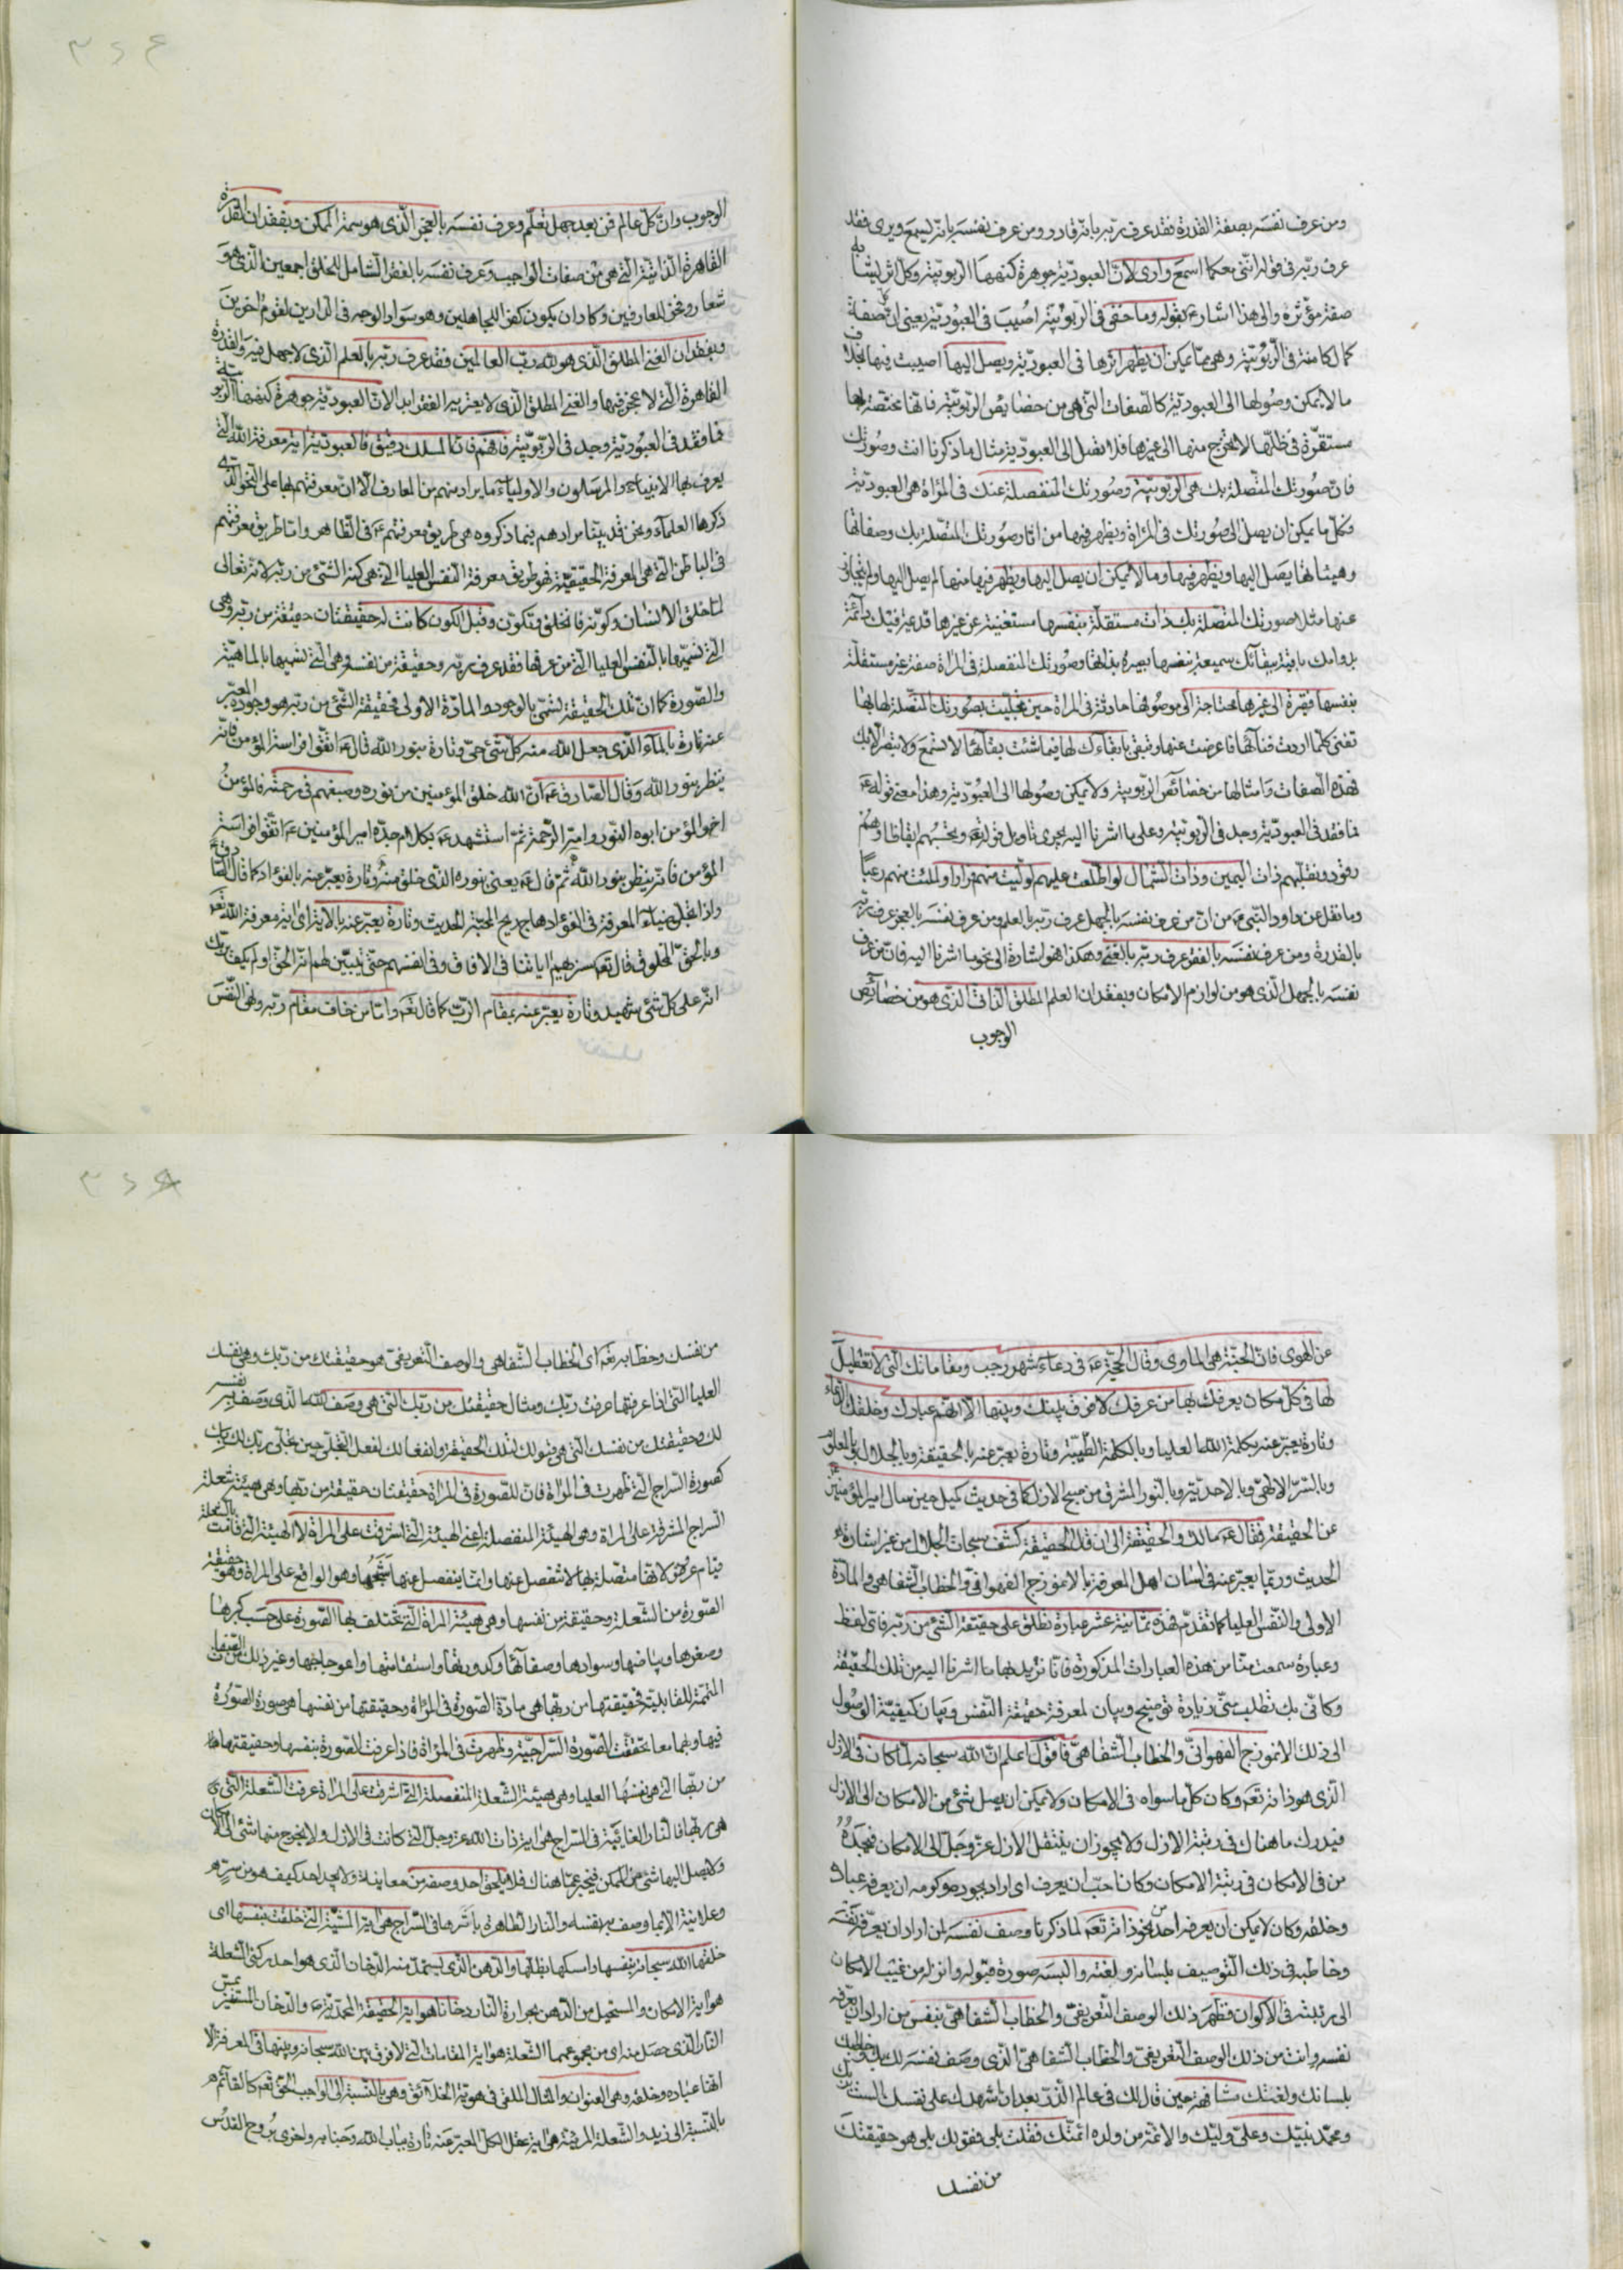 ومن عرف نفسه بصفة القدرة فقد عرف ربّه بانّه قادر ومن عرف نفسه بانّه يسمع ويرى فقد
عرف ربّه فى قوله انّنى معكما اسمع وارى لانّ العبوديّة جوهرة كنهها الربوبيّة وكل اثر يشابه
صفة مؤثره والى هذا اشار ع بقوله وما خفى فى الرّبوبيّة اصيب فى العبوديّة يعنى ان كل صفة
كمال كامنة فى الرّبوبيّة وهى ممّا يمكن ان يظهر اثرها فى العبوديّة ويصل اليها اصيبت فيها بخلاف
ما لا يمكن وصولها الى العبوديّة كالصفات التى هى من خصايص الربوبيّة فانّها مختصّة بها
مستقرّة فى ظلّها لا تخرج منها الى غيرها فلا تصل الى العبوديّة مثال ما ذكرنا انت وصورتك
فانّ صورتك المتّصلة بك هى الربوبيّة وصورتك المنفصلة عنك فى المرآة هى العبوديّة
فكلّ ما يمكن ان يصل الى صورتك فى المرآة ويظهر فيها من اثار صورتك المتّصلة بك وصفاتها
وهيئاتها يصل اليها ويظهر فيها وما لا يمكن ان يصل اليها ويظهر فيها منها لم يصل اليها ولم يتجاوز
عنها مثلا صورتك المتصلة بك ذات مستقلّة بنفسها مستغنية عن غيرها قديمة فيك دائمة
بدوامك باقية ببقائك سميعة بنفسها بصيرة بذاتها وصورتك المنفصلة فى المرآة صفة غير مستقلّة
بنفسها فقيرة الى غيرها محتاجة الى موصوفها حادثة فى المرآة حين تجلّيت بصورتك المتّصلة لها بها
تفنى كلّما اردت فنائها فاعرضت عنها وتبقى بابقاءك لها فيما شئت بقائها لا تسمع ولا تبصر الّا بك
فهذه الصفات وامثالها من خصائص الربوبيّة ولا يمكن وصولها الى العبوديّة وهذا معنى قوله ع
فما فقد فى العبوديّة وجد فى الربوبيّة وعلى ما اشرنا اليه يجرى تاويل قوله تعه وتحسبهم ايقاظا وهُم
رقود ونقلّبهم ذات اليمين وذات الشّمال لو اطّلعت عليهم لولّيت منهم فرارا ولملئت منهم رعباً
وما نقل عن داود النّبى ع من انّ من عرف نفسه بالجهل عرف ربّه بالعلم ومن عرف نفسه بالعجز عرف ربّه
بالقدرة ومن عرف نفسه بالفقر عرف ربّه بالغنى وهكذا هو اشارة الى نحو ما اشرنا اليه فانّ من عرف
نفسه بالجهل الّذى هو من لوازم الامكان وبفقدان العلم المطلق الذاتى الّذى هو من خصائص
الوجوب
الوجوب وانّ كلّ عالم فمن بعد جهل تعلّم وعرف نفسه بالعجز الّذى هو سمة الممكن وبفقدان القدرة
القاهرة الذاتيّة الّتى هى من صفات الواجب وعرف نفسه بالفقر الشامل للخلق اجمعين الّذى هو
شعار وفخر للعارفين وكاد ان يكون كفرا للجاهلين وهو سواد الوجه فى الدّارين لقوم اخرين
وبفقدان الغنى المطلق الّذى هو لله ربّ العالمين فقد عرف ربّه بالعلم الّذى لا جهل فيه والقدرة
القاهرة الّتى لا عجز فيها والغنى المطلق الّذى لا يعتريه الفقر ابدا لانّ العبوديّة جوهرة كنهها الربوبيّة
فما فقد فى العبوديّة وجد فى الرّبوبيّة فافهم فانّ المسلك دقيق فالعبوديّة اية معرفة الله الّتى
يعرف بها الانبياء والمرسلون والاولياء ما يراد منهم من المعارف الّا انّ معرفتهم لها على النّحو الّذى
ذكرها العلماء ونحن قد بيّنا مرادهم فيما ذكروه هى طريق معرفتهم ع فى الظاهر وامّا طريق معرفتهم
فى الباطن الّتى هى المعرفة الحقيقيّة فهو طريق معرفة النفس العليا الّتى هى كنه الشئ من ربّه لانّه تعالى
لمّا خلق الانسان وكوّنه فانخلق وتكوّن وقبل الكون كانت له حقيقتان حقيقة من ربّه وهى
الّتى نسمّيها بالنفس العليا الّتى من عرفها فقد عرف ربّه وحقيقة من نفسه وهى الّتى نسمّيها بالماهيّة
والصّورة كما انّ تلك الحقيقة تسمّى بالوجود والمادّة الاولى فحقيقة الشئ من ربّه هو وجوده المعبّر
عنه تارة بالماء الّذى جعل الله منه كلّ شئ حىّ وتارة بنور الله قال ع اتّقوا فراسة المؤمن فانّه
ينظر بنور الله وقال الصّادق ع انّ الله خلق المؤمنين من نوره وصبغهم فى رحمته فالمؤمنُ
اخو المؤمن ابوه النّور وامّه الرّحمة ثمّ استشهد ع بكلام جدّه امير المؤمنين ع اتّقوا فراسة
المؤمن فانّه ينظر بنور الله ثمّ قال ع يعنى بنوره الذى خلق منه وتارة يعبّر عنه بالفؤاد كما قال الصّادق ع
واذا تجلّى ضياء المعرفة فى الفؤاد هاج ريح المحبّة الحديث وتارة يعبّر عنه بالاية اى اية معرفة الله تعه
وبالحقّ المخلوق قال تعه سنريهم اياتنا فى الافاق وفى انفسهم حتّى يتبيّن لهم انّه الحق اولم يكف بربّك
انّه على كلّ شئ شهيد وتارة يعبّر عنه بمقام الربّ كما قال تعه وامّا من خاف مقام ربّه ونهى النّفس
عن الهوى فانّ الجنّة هى الماوى وقال الحجّة ع فى دعاء شهر رجب ومقاماتك الّتى لا تعطيل
لها فى كلّ مكان يعرفك بها من عرفك لا فرق بينك وبينها الّا انّهم عبادك وخلقك الدعاء
وتارة يعبّر عنه بكلمة الله العليا وبالكلمة الطّيّبة وتارة يعبّر عنه بالحقيقة وبالجلال
وبالسّر الالهى وبالاحديّة وبالنور المشرق من صبح الازل كما فى حديث كميل حين سال امير المؤمنين ع
عن الحقيقة فقال ع مالك والحقيقة الى ان قال الحقيقة كشف سبحات الجلال من غير اشارة
الحديث وربّما يعبّر عنه فى لسان اهل المعرفة بالانموذج الفهوانى والخطاب الشفاهى والمادّة
الاولى والنّفس العليا كما تقدّم فهذه ثمانية عشر عبارة تطلق على حقيقة الشئ من ربّه فاىّ لفظ
وعبارة سمعت منّا من هذه العبارات المذكورة فانّا نريد بها ما اشرنا اليه من تلك الحقيقة
وكانّى بك تطلب منّى زيادة توضيح وبيان لمعرفة حقيقة النّفس وبيان كيفيّة الوصُول
الى ذلك الانموذج الفهوانىّ والخطاب الشفاهىّ فاقول اعلم انّ الله سبحانه لمّا كان فى الازل
الّذى هو ذاته تعه وكان كلّ ما سواه فى الامكان ولا يمكن ان يصل شئ من الامكان الى الازل
فيدرك ما هناك فى رتبة الازل ولا يجوز ان ينتقل الازل عزّ وجلّ الى الامكان فيجدهُ
من فى الامكان فى رتبة الامكان وكان احبّ ان يعرف اى اراد بجوده وكرمه ان يعرفه عباده
وخلقه وكان لا يمكن ان يعرفه احد من نحو ذاته تعه لما ذكرنا وصف نفسه لمن اراد ان يعرّفه نفسه
وخاطبه فى ذلك التّوصيف بلسانه ولغته والبسه صورة قبوله وانزله من غيب الامكان
الى مرتبته فى الاكوان فظهر ذلك الوصف التّعريفىّ والخطاب الشفاهىّ بنفس من اراد ان يعرّفه
نفسه وانت من ذلك الوصف التّعريفىّ والخطاب الشفاهىّ الّذى وصف نفسه لك بك وخاطبك
بلسانك ولغتك مشافهة حين قال لك فى عالم الذّر بعد ان اشهدك على نفسك الست بربّك
ومحمّد نبيّك وعلىّ وليّك والائمّة من ولده ائمّتك فقلت بلى فقولك بلى هو حقيقتك
من نفسك
من نفسك وخطابه تعه اى الخطاب الشّفاهى والوصف التّعريفىّ هو حقيقتك من ربّك وهى نفسك
العليا التى اذا عرفتها عرفت ربّك ومثال حقيقتك من ربّك التى هى وصف الله الّذى وصف به نفسه
لك وحقيقتك من نفسك الّتى هى قبولك لتلك الحقيقة وانفعالك لفعل التّجلّى حين تجلّى ربّك لك بك
كصورة السّراج الّتى ظهرت فى المرآة فانّ للصّورة فى المرآة حقيقتان حقيقة من ربّها وهى هيئة شعلة
السراج المشرقة على المرآة وهى الهيئة المنفصلة اعنى الهيئة الّتى اشرقت على المرآة لا الهيئة الّتى قامت بالشعلة
قيام عروض لانّها متّصلة بها لا تنفصل عنها وانّما ينفصل عنها شبحُها وهو الواقع على المرآة وهو حقيقة
الصّورة من الشّعلة وحقيقة من نفسها وهى هيئة المرآة الّتى تختلف بها الصّورة على حسب كبرها
وصغرها وبياضها وسوادها وصفآئها وكدورتها واستقامتها واعوجاجها وغير ذلك من الصّفات
المتمّمة للقابليّة فحقيقتها من ربّها هى مادّة الصّورة فى المرآة وحقيقتها من نفسها هى صورة الصّورة
فيها وبهما معا تحقّقت الصّورة السّراجيّة وظهرت فى المرآة فاذا عرفت الصّورة نفسها وحقيقتها
من ربّها الّتى هى نفسُها العليا وهى هيئة الشّعلة المنفصلة الّتى اشرقت على المرآة عرفت الشّعلة الّتى
هى ربّها فالنار الغائبة فى السّراج هى اية ذات الله عزّ وجلّ الّتى كانت فى الازل ولا يخرج منها شئ الى الامكان
ولا يصل اليها شئ من الممكن فيخبر عمّا هناك فلا يلحق احد وصفه من معاينة ولا يجد احد كيف هو من سرّه
وعلانية الّا بما وصف به نفسه والنار الظاهرة باثرها فى السّراج هى اية المشيّة الّتى خلقت بنفسها اى
خلقها الله سبحانه بنفسها وامسكها بظلّها والدّهن الّذى يستمدّ منه الدّخان الّذى هو احد ركنى الشعلة
هو اية الامكان والمستحيل من الدّهن بحرارة النار دخانا هو اية الحقيقة المحمّديّة ص والدخان المستضئ بمسّ
النّار الّذى حصل منه اى من مجموعهما الشعلة هو اية المقامات الّتى لا فرق بين الله سبحانه وبينها فى المعرفة الّا
انّها عباده وخلقه وهى العنوان والمثال الملقى فى هويّة الخلائق وهى بالنّسبة الى الواجب الحقّ تعه كالقائم
بالنّسبة الى زيد والشّعلة المرئيّة هى اية عقل الكلّ المعبّر عنه تارة بباب الله وجنابه واخرى بروح القدُس